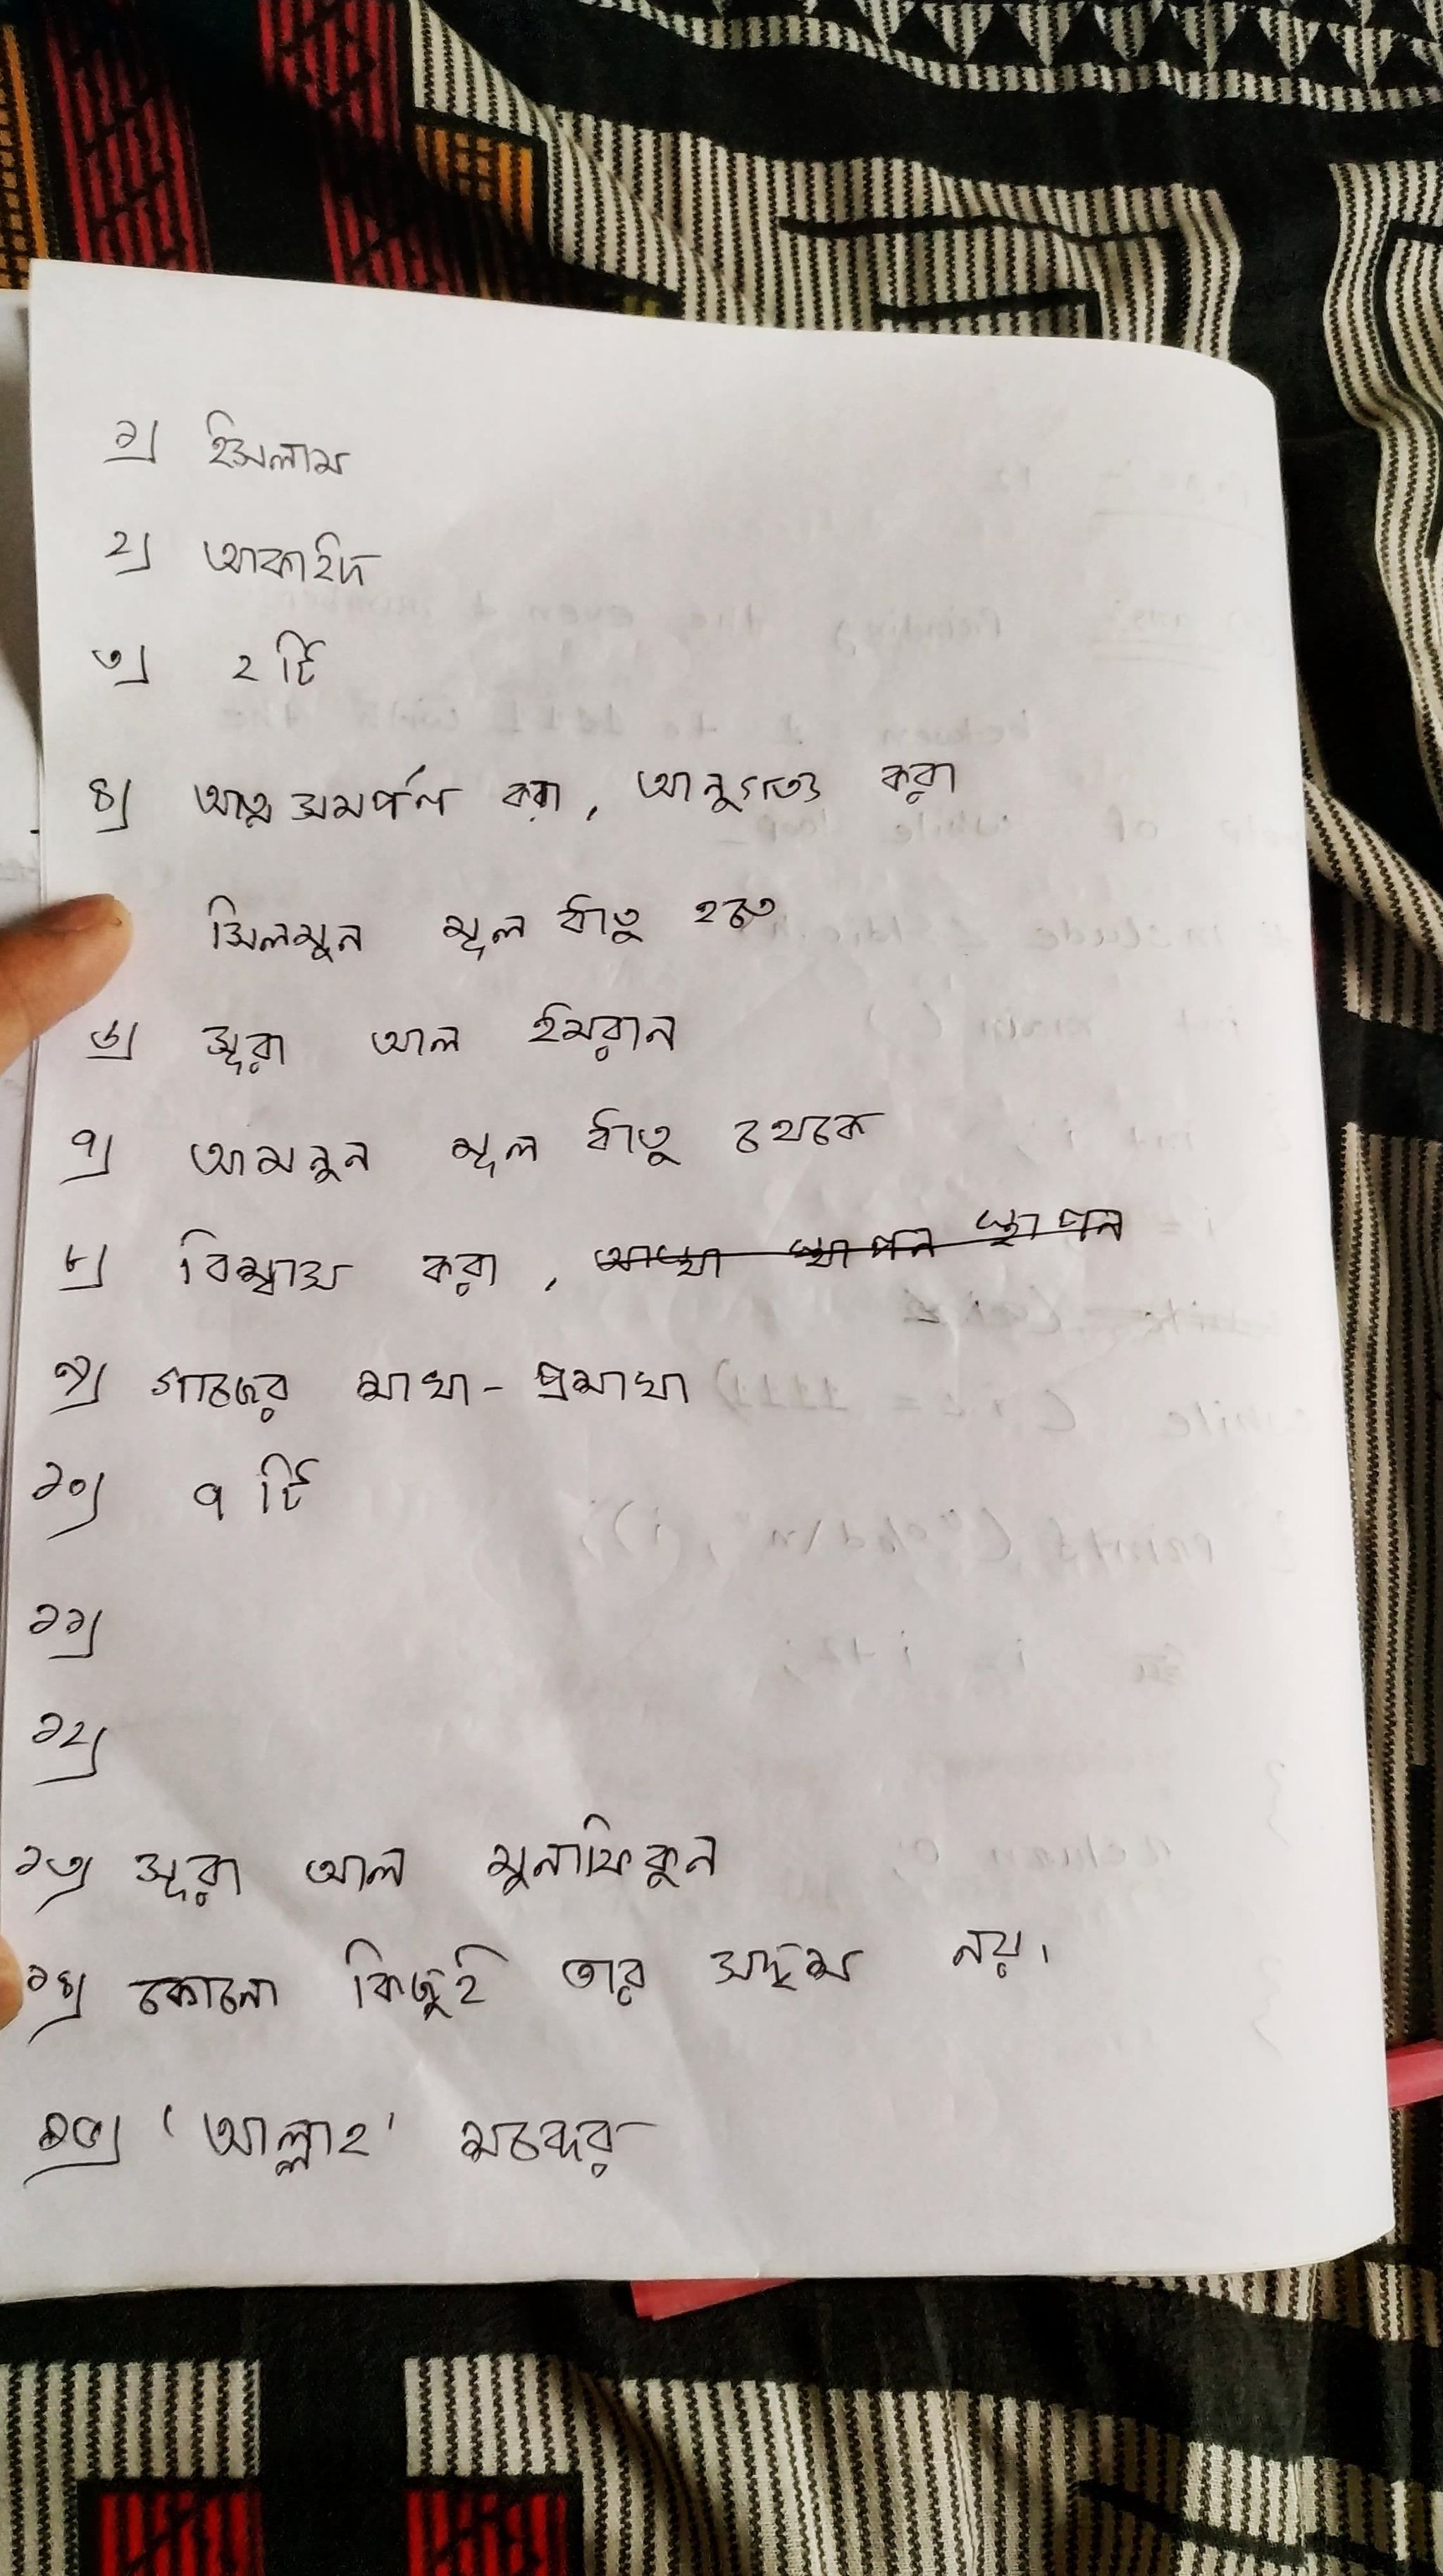 ১) ইসলাম
২) আকাইদ
৩) ২ টি
৪) আত্নসমর্পণ করা, আনুগত্য করা
সিলমুন মূল ধাতু হতে
৬) সূরা আল ইমরান
৭) আমনুন মূল ধাতু থেকে
৮) বিশ্বাস করা,
৯) গাছের শাখা-প্রশাখা
১০) ৭ টি
১১)
১২)
১৩) সূরা আল মুনাফিকুন
১৪) কোনো কিছুই তার সদৃশ নয়।
১৫) 'আল্লাহ' শব্দের